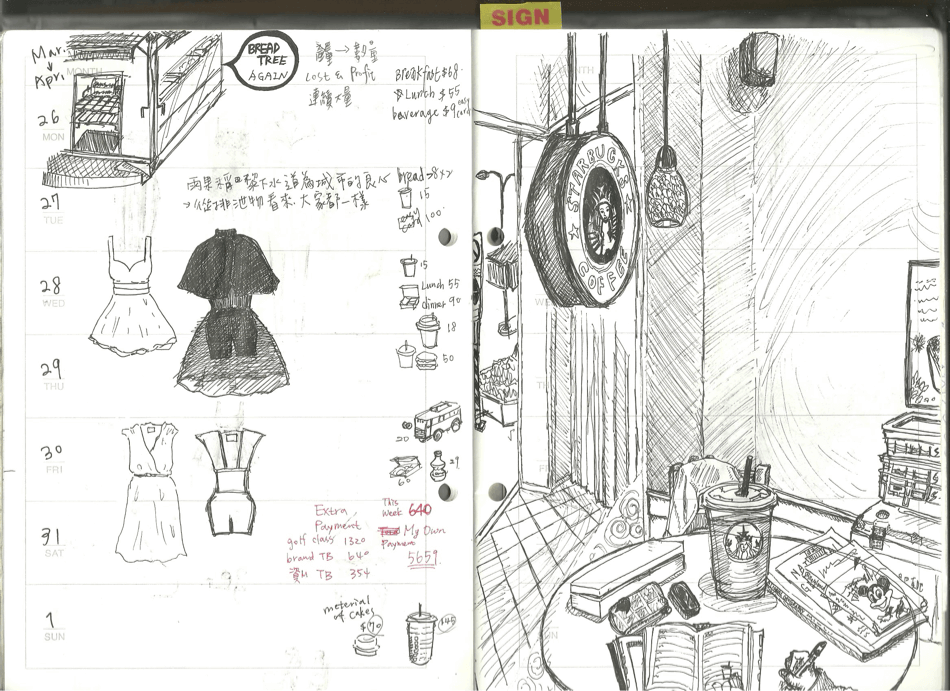 SIGN
Mar.
Apr.
MONTH
BREAD
TREE
AGAIN
Lost & Profit
連續
Breakfast $68
Lunch $55
beverage $9 easy card
26
MON
雨果稱巴黎下水道為城市的良心
→從排泄物看來 大家都一樣
bread 28x2
15
easy
card 100
27
TUE
28
WED
15
Lunch 55
dinner 90
18
50
29
THU
30
FRI
20
60
29
31
SAT
Extra
Payment
golf class 1320
brand TB 640
TB 354
This
Week 640
My Own
Payment
5659
1
SUN
material
of cakes
$170
$45
STARBUCKS
COFFEE